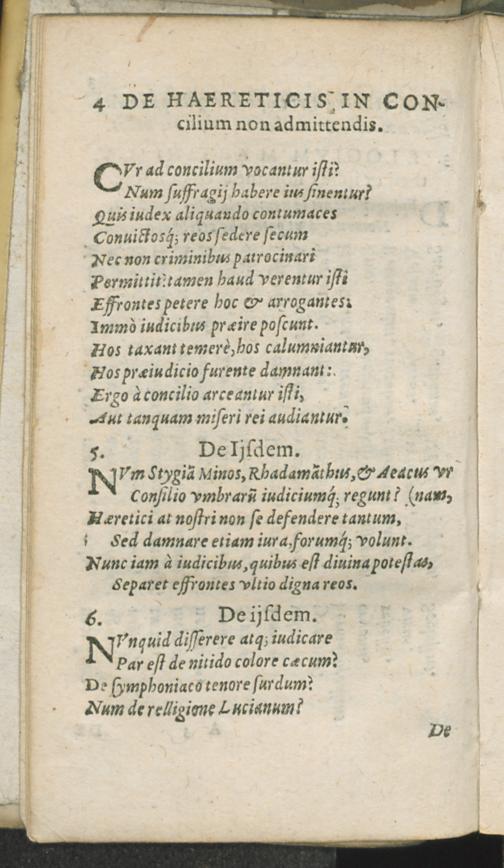 4 DE HAERETICIS IN CON-
cilium non admittendis.
CVr ad concilium vocantur iſti?
Num ſuffragij habere ius ſinentur?
Quis iudex aliquando contumaces
Convictosq́; reos ſedere ſecum
Nec non criminibus patrocinari
Permittit: tamen haud verentur iſti
Effrontes petere hoc & arrogantes:
Immò iudicibus præire poſcunt.
Hos taxant temerè, hos calumniantur,
Hos præiudicio furente damnant:
Ergo à concilio arceantur iſti,
Aut tanquam miſeri rei audiantur.
5. De Ijſdem.
NVm Stygiā Minos, Rhadamāthus, & Aeacus vr
Conſilio vmbrarū iudiciumq́; regunt? (nam,
Hæretici at noſtri non ſe defendere tantum,
Sed damnare etiam iura, forumq́; volunt.
Nunc iam à iudicibus, quibus eſt diuina poteſtas,
Separet effrontes vltio digna reos.
6. De ijſdem.
NVnquid diſſerere atq; iudicare
Par eſt de nitido colore cæcum?
De ſymphoniaco tenore ſurdum?
Num de relligione Lucianum?
De